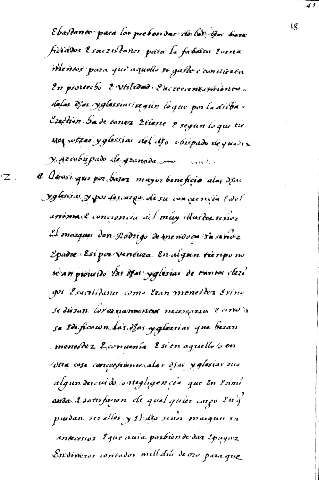 18
E bastante para los prebendados de las dhas bene
ficiados E sacristanes para la fabrica E orna
mientos para que aquello se gaste e convierta
En provecho E utilidad E acrecentamiento
de las dhas yglesias segun lo que por la dicha
Ereçion ha de tener E tiene E segun lo que tie
nen otras yglesias del dho obispado de guadix
y arçobispado de granada
Otrosi que por hazer mayor beneficio a las dhas
yglesias y por descargo de su conçiençia E del
anima E conciencia del muy Illustre señor
El marques don Rodrigo de mendoça su señor
E padre E si por ventura En algun tiempo no
se an proveido las dhas yglesias de tantos cleri
gos E sacristanes como Eran menester E si no
se dieron los ornamentos necesarios e si no
se Edificaron las dhas yglesias que heran
menester E convenia E si en aquello o en
otra cosa conçerniente a las dhas yglesias uvo
algun descuido o negligençia que En Enmi
enda E satisfaçion de qual quier cargo En q
puedan ser ellos y El dho señor marques su
antecesor E que avia por bien de dar E pagar
En dineros contados mill ds de oro para que